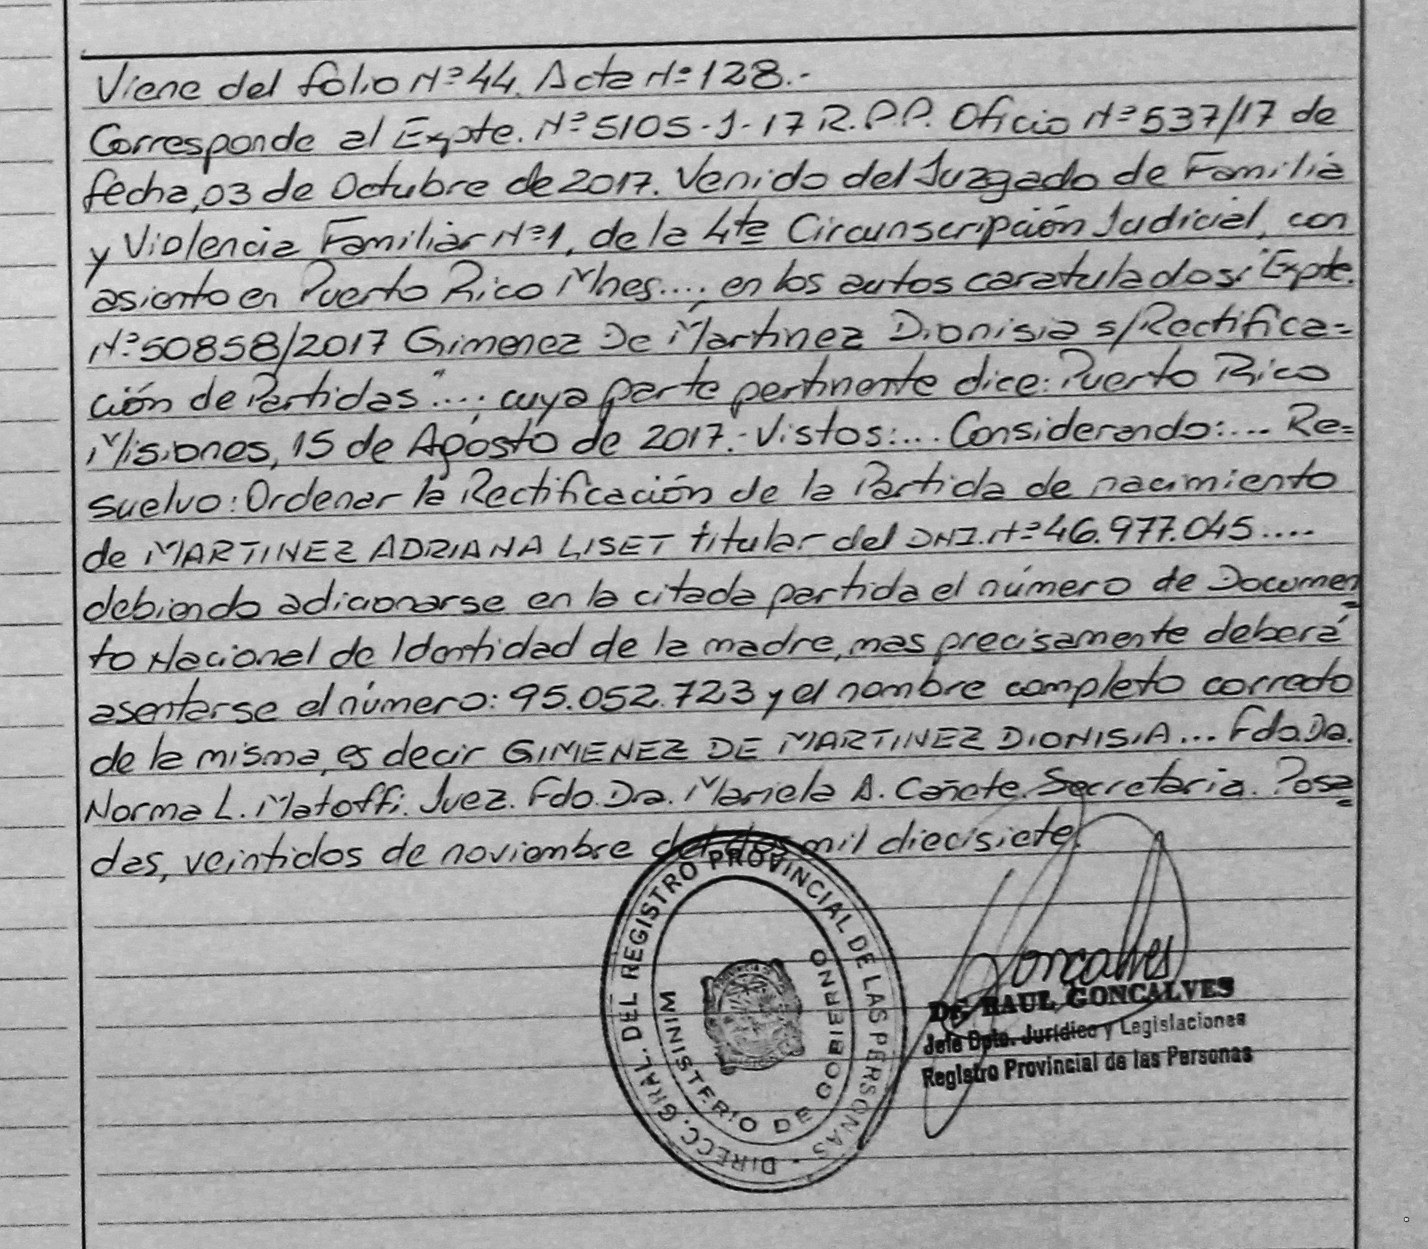 Viene del folio Nº 44. Acta Nº 128.-
Corresponde al Expte. Nº 5105-J-17 R.P.P. Oficio Nº 537/17 de
fecha, 03 de Octubre de 2017. Venido del Juzgado de Familia
y Violencia Familiar Nº 1, de la 4ta Circunscripción Judicial, con
asiento en Puerto Rico Mnes...., en los autos caratulados: "Expte.
Nº 50858/2017 Gimenez De Martinez Dionisia s/Rectifica=
ción de Partidas"...; cuya parte pertinente dice: Puerto Rico
Misiones, 15 de Agosto de 2017.- Vistos:... Considerando:... Re=
suelvo: Ordenar la Rectificación de la Partida de nacimiento
de MARTINEZ ADRIANA LISET titular del DNI. Nº 46.977.045....
debiendo adicionarse en la citada partida el número de Documen
to Nacional de Identidad de la madre, mas precisamente deberá
asentarse el número: 95.052.723 y el nombre completo correcto
de la misma, es decir GIMENEZ DE MARTINEZ DIONISIA... Fdo. Da.
Norma L. Matoffi. Juez. Fdo. Dra. Mariela A. Cañete. Secretaria. Posa=
das, veintidos de noviembre del dos mil diecisiete.
DIRECC. GRAL. DEL REGISTRO PROVINCIAL DE LAS PERSONAS -
MINISTERIO DE GOBIERNO
Goncalves
Dr. RAUL GONCALVES
Jefe Dpto. Jurídico y Legislaciones
Registro Provincial de las Personas